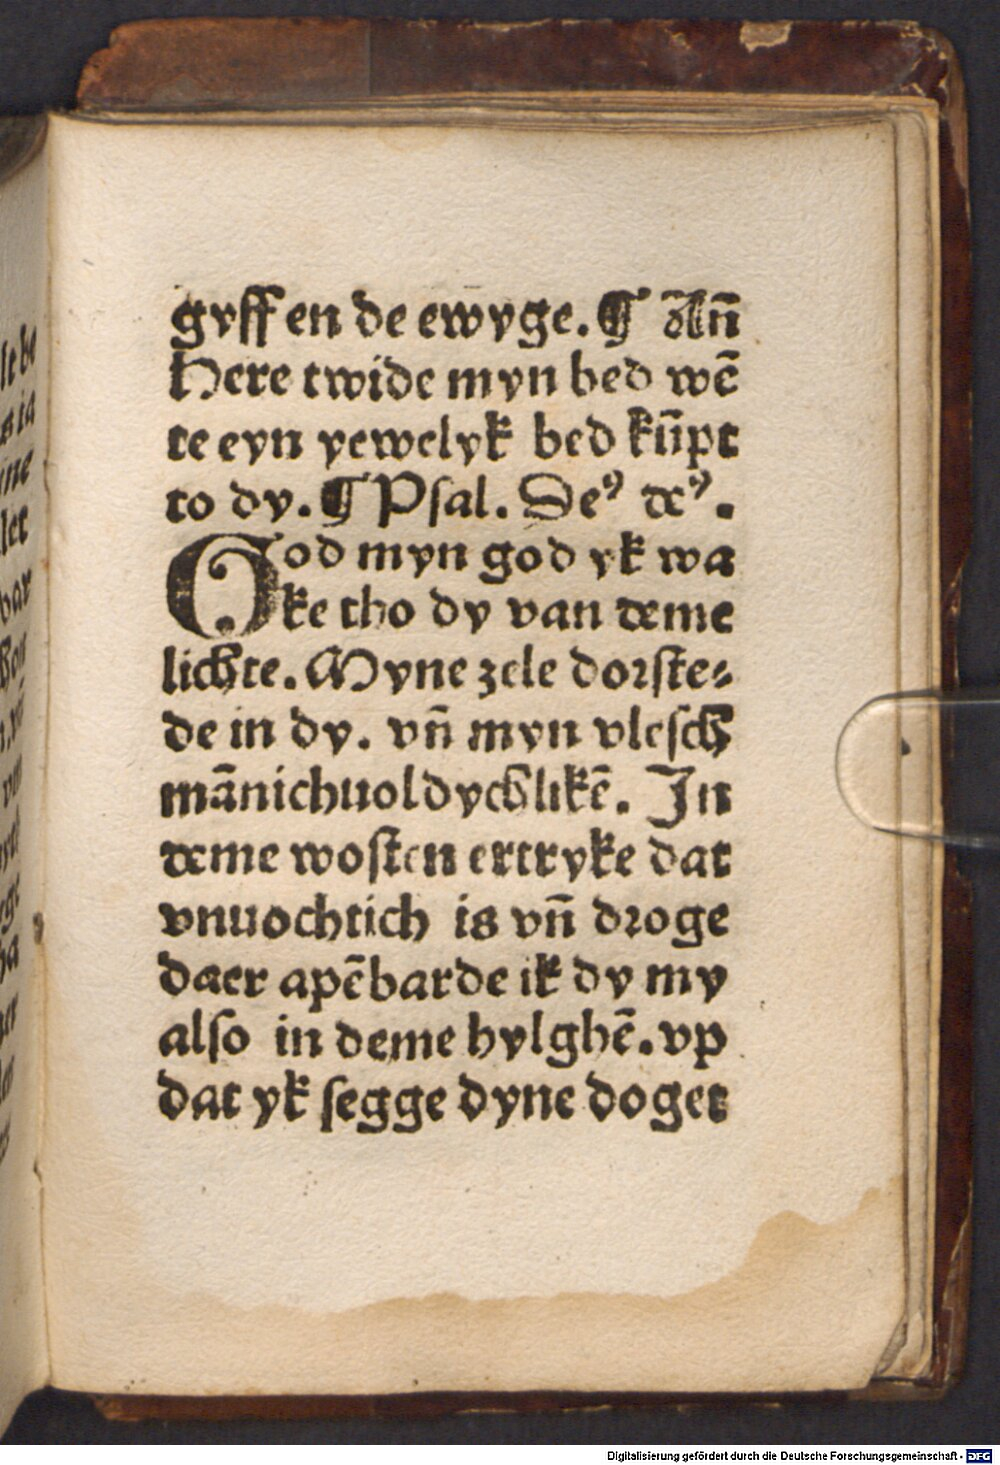 gyff en de ewyge. ¶ Añ
Here twide myn bed wē
te eyn yewelyk bed kūpt
to dy. ¶ Psal. Deꝰ deꝰ.
God myn god yk wa
ke tho dy van deme
lichte. Myne zele dorste⸗
de in dy. vñ myn vlesch
mānichuoldychlikē. In
deme wosten ertryke dat
vnuochtich is vñ droge
daer apēbarde ik dy my
also in deme hylghē. vp
dat yk segge dyne doget
Digitalisierung gefördert durch die Deutsche Forschungsgemeinschaft - DFG